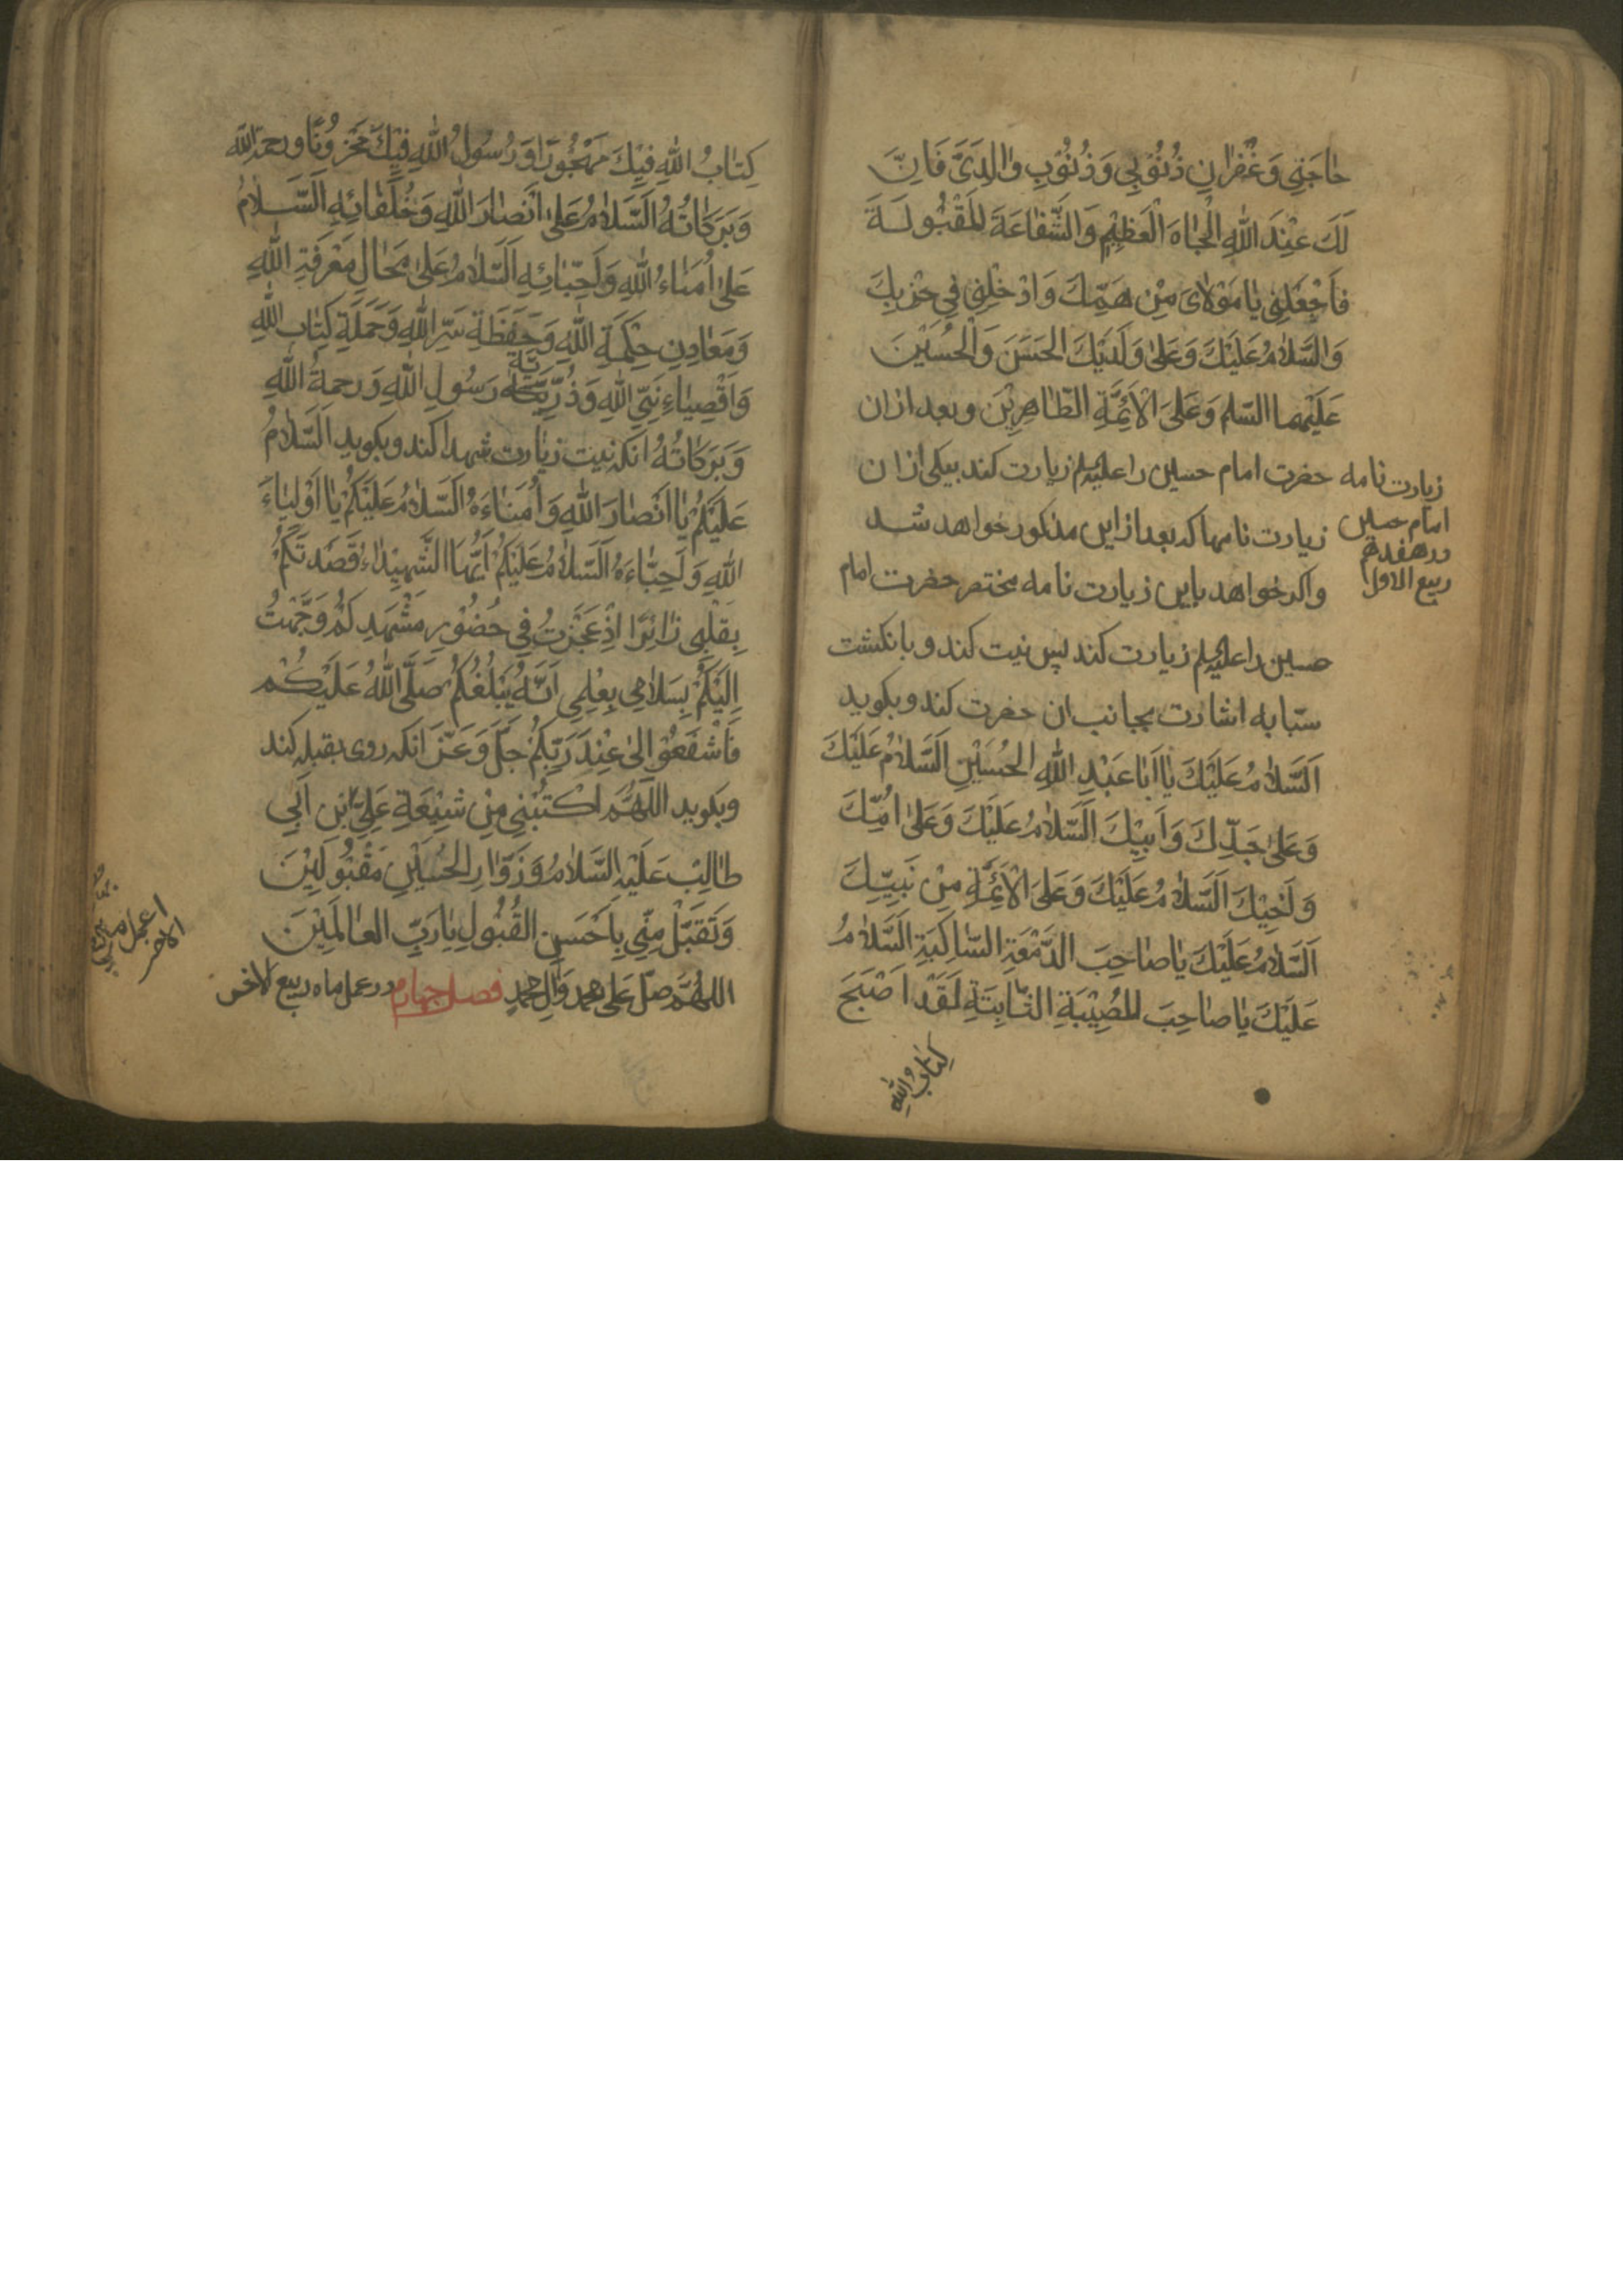 حٰاجَتِي وَغُفْرٰانِ ذُنُوْبِي وَذُنُوْبِ وٰالِدَيَّ فَاِنَّ
لَكَ عِنْدَ اللّٰهِ الْجٰاهَ الْعَظِيْمِ وَالشَّفٰاعَةَ الْمَقْبُولَةَ
فَاجْعَلْنِي يٰا مَوْلٰايَ مِنْ هَمِّكَ وَادْخِلْنِي فِي حِزْبِكَ
وَالسَّلٰامُ عَلَيْكَ وَعَلىٰ وَلَدَيْكَ الحَسَنَ وَالْحُسَيْنَ
عَلَيْهِما السّلم وَعَلَى الْاَئِمَّةِ الطّٰاهِرِيْنَ وبعد ازان
حضرت امام حسين را عليه‌السلم زيارت كند بيكى ازان
زيارت نامها كه بعد ازاين مذكور خواهد شد
واكر خواهد باين زيارت نامه مختصر حضرت امام
حسين را عليه‌السلم زيارت كند پس نيت كند و بانكشت
سبّابه اشارت بجانب ان حضرت كند و بكويد
اَلسَّلٰامُ عَلَيْكَ يٰا اَبٰا عَبْدِ اللّٰهِ الْحُسَيْنِ اَلسَّلٰامُ عَلَيْكَ
وَعَلىٰ جَدِّكَ وَاَبِيْكَ اَلسَّلٰامُ عَلَيْكَ وَعَلىٰ اُمِّكَ
وَاَخِيْكَ اَلسَّلٰامُ عَلَيْكَ وَعَلَى الْاَئِمَّةِ مِنْ نَبِيِّكَ
اَلسَّلٰامُ عَلَيْكَ يٰا صٰاحِبَ الدَّمْعَةِ السّٰاكِبَةِ اَلسَّلٰامُ
عَلَيْكَ يٰا صٰاحِبَ المُصِيْبَةِ الثّٰابِتَةِ لَقَدْ اَصْبَحَ
كِتٰابُ اللّٰهِ
زيارت نامه
امام حسين
در هفدهم
ربيع الاول
كِتٰابُ اللّٰهِ فِيْكَ مَهْجُوْرًا وَرَسُولُ اللّٰهِ فِيْكَ مَحْزُوْنًا ورحمة اللّٰه
وَبَرَكٰاتُهُ اَلسَّلٰامُ عَلىٰ اَنْصٰارَ اللّٰهِ وَخُلَفٰائِهِ اَلسَّلٰامُ
عَلىٰ اُمَنٰاءُ اللّٰهِ وَاَحِبّٰائِهِ اَلسَّلٰامُ عَلىٰ مَحٰالِ مَعْرِفَةِ اللّٰهِ
وَمَعٰادِنِ حِكْمَةِ اللّٰهِ وَحَفَظَةِ سَرِّ اللّٰهِ وَحَمَلَةِ كِتٰابِ اللّٰهِ
وَاَوْصِيٰاءِ نَبِيِّ اللّٰهِ وَذُرِّيَّتِهِ رَسُولِ اللّٰهِ وَرحمةُ اللّٰهِ
وَبَرَكٰاتُهُ انكه نيت زيارت شهدا كند وبكويد اَلسَّلٰامُ
عَلَيْكُمْ يٰا اَنْصٰارَ اللّٰهِ وَاُمَنٰاءَهُ اَلسَّلٰامُ عَلَيْكُمْ يٰا اَوْلِيٰاءَ
اللّٰهِ وَاَحِبّٰاءَهُ اَلسَّلٰامُ عَلَيْكُمْ اَيُّهَا الشَّهِيْدٰاءِ قَصَدْتَكُمْ
بِقَلْبِي زٰائِرًا اِذْ عَجَزْتُ فِي حُضُوْرِ مَشْهَدِكُمْ وَجَّهْتُ
اِلَيْكُمْ بِسَلٰامِي بِعِلْمِي اَنَّهُ يُبَلِّغُكُمْ صَلَّى اللّٰهُ عَلَيْكُمْ
فَاشْفَعُوْا لِي عِنْدَ رَبِّكُمْ جَلَّ وَعَزَّ انكه روى بقبله كند
وبكويد اللّٰهُمَّ اكْتُبْنِي مِنْ شِيْعَةِ عَلِيِّ ابْنِ اَبِي
طٰالِبٍ عَلَيْهِ السَّلٰامُ وَزَوّٰارِ الْحُسَيْنِ مَقْبُولِيْنَ
وَتَقَبَّلْ مِنِّي بِاَحْسَنِ القُبُوْلِ يٰا رَبِّ العٰالَمِيْنَ
اللهُمَّ صَلِّ عَلى محمد وَآلِ محمدٍ فصل چهارم در عمل ماه ربيع الاخر